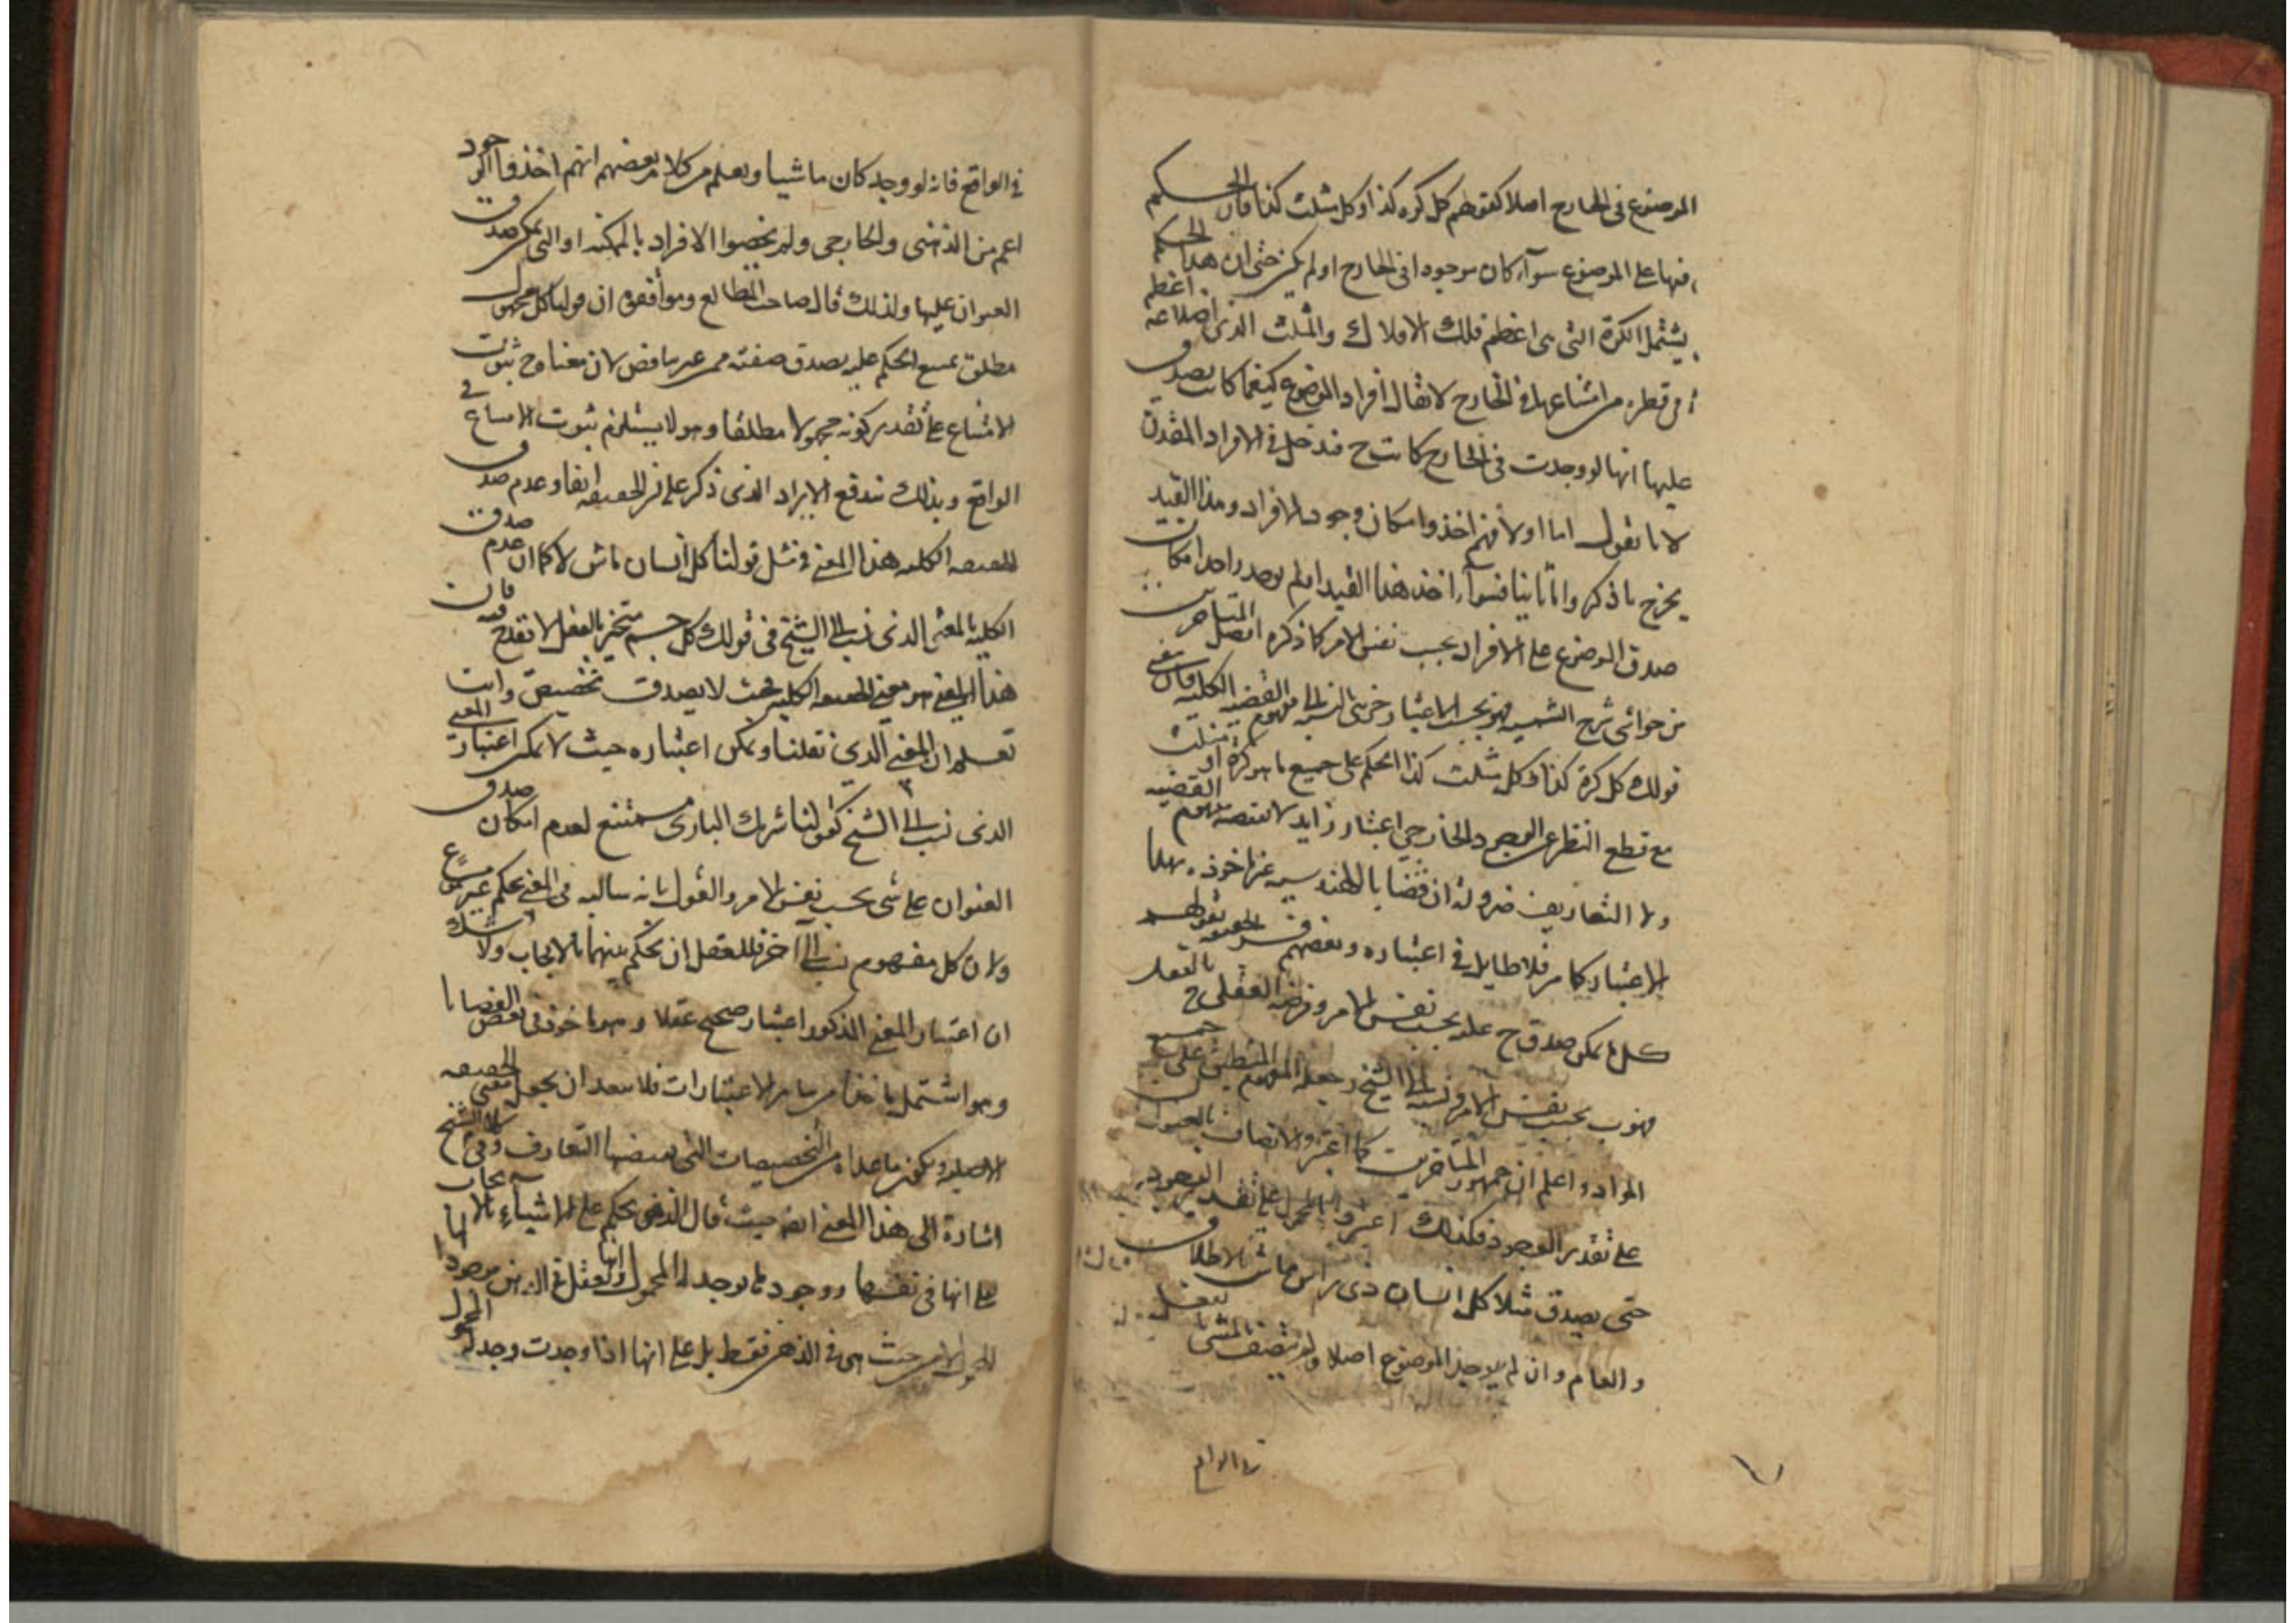 الموضوع فى الخارج اصلا كقولهم كل كره كذا وكل مثلث كذا فان الحكم
فيها على الموضوع سواء كان موجودا فى الخارج او لم يكن حتى ان هذا الحكم
يشتمل الكرة التى هى اعظم فلك الافلاك والمثلث الذى اضلاعه اعظم
من قطره مع امتناعها فى الخارج لا يقال افراد الموضوع كيفما كانت يصدق
عليها انها لو وجدت فى الخارج كانت ح فتدخل فى الافراد المقدرة
لانا نقول اما اولا فهم اخذوا امكان وجود الافراد وهذا القيد
يخرج ما ذكر واما ثانيا فسواء اخذ هذا القيد او لم يوجد امكان
صدق الموضوع على الافراد بحسب نفس الامر كما ذكره افضل المتاخرين
من حواشى شرح الشمسيه فهو بحسب الاعتبار مفهوم القضيه الكليه فان معنى
قولك كل كرة كذا وكل مثلث كذا الحكم على جميع ما هو كرة او مثلث
مع قطع النظر عن الوجود الخارجى اعتبار زايد لا يقتضيه مفهوم القضيه
ولا التعاريف ضرورة ان قضايا الهندسيه غير ماخوذه بهذا
الاعتبار كما مر فلا طايل فى اعتباره وبعضهم فسر الحقيقيه بقولهم
كل ما يمكن صدق ح عليه بحسب نفس الامر وفرضه العقلى ح بالفعل
فهو ب بحسب نفس الامر ونسبه الى الشيخ وجعله المفهوم المنطبق على جميع
المواد واعلم ان جمهور المتاخرين كما اعتبروا الاتصاف بالعنوان
على تقدير الوجود فكذلك اعتبروا الحمل على تقدير الوجود
حتى يصدق مثلا كل انسان ذى راس ماش بالاطلاق
والعام وان لم يوجد الموضوع اصلا ولم يتصف بالمشى بالفعل
فى الواقع
فى الواقع فانه لو وجد كان ماشيا ويعلم من كلام بعضهم انهم اخذوا الوجود
اعم من الذهنى والخارجى ولم يخصوا الافراد بالممكنه او التى يمكن صدق
العنوان عليها ولذلك قال صاحب المطالع وموافقوه ان قولنا كل مجهول
مطلق يمتنع الحكم عليه يصدق صفته من غير تناقض لان معناه ح ثبوت
الامتناع على تقدير كونه مجهولا مطلقا وهو لا يستلزم ثبوت الامتناع فى
الواقع وبذلك تندفع الايراد الذى ذكر على الحقيقيه ايضا وعدم صدق
الحقيقيه الكليه هذا المعنى فى مثل قولنا كل انسان ماش لا كما ان عدم صدق
الكلية بالمعنى الذى نسب الى الشيخ فى قولك كل جسم متحيز بالفعل لا تقدح فيه فان
هذا المعنى هو معنى الحقيقيه الكليه فحيث لا يصدق تخصيص وانت
تعلم ان المعنى الذى نقلنا ويمكن اعتباره حيث لا يمكن اعتبار المعنى
الذى نسب الى الشيخ كقولنا شريك البارى ممتنع لعدم امكان صدق
العنوان على شى بحسب نفس الامر والقول بانه سالبه فى المعنى تحكم غير مسموع
ولان كل مفهوم نسب الى آخر فللعقل ان يحكم بينهما بالايجاب ولا شك
ان اعتبار المعنى المذكور اعتبار صحيح عقلا وهو ماخوذ فى بعض القضايا
وهو اشتمل ماخذا من ساير الاعتبارات فلا يبعد ان يجعل معنى الحقيقيه
الاصليه ويكون ما عداه من التخصيصات التى يقتضيها التعارف وفى كلام الشيخ
اشارة الى هذا المعنى ايضا حيث قال الذهن يحكم على الاشياء بالايجاب
على انها فى نفسها ووجودها يوجد لها المحمول وانها تعقل فى الذهن موجودة لها
المحمول لا من حيث هى فى الذهن فقط بل على انها اذا وجدت وجد له المحمول